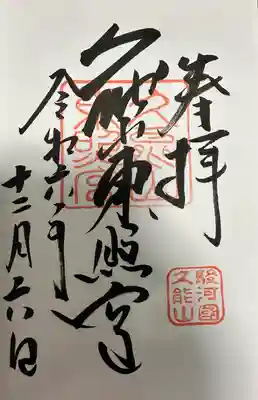 奉拝
駿河國
久能山
久能山東照宮
令和六年
十二月二六日